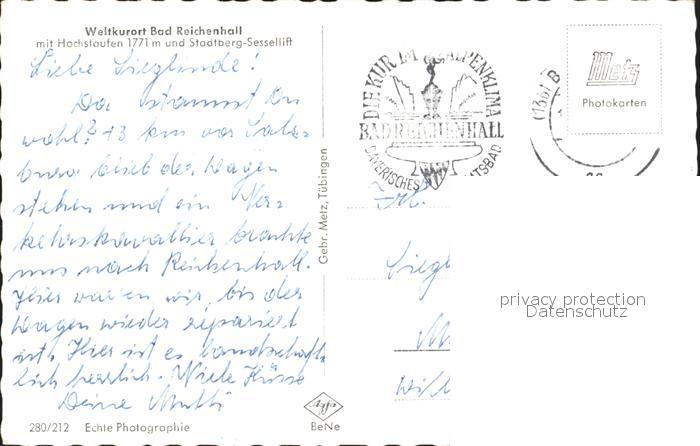 Weltkurort Bad Reichenhall
mit Hochstaufen 1771 m und Stadtberg-Sessellift
Liebe Sieglinde!
Da staunst Du
wohl? 13 km vor Salz=
burg blieb der Wagen
stehen und ein Ver=
kehrskavallier brachte
uns nach Reichenhall.
Hier waren wir, bis der
Wagen wieder repariert
ist. Hier ist es landschaft=
lich herrlich. Viele Küsse
Deine Mutti
280/212 Echte Photographie
Gebr. Metz, Tübingen
Agfa
BeNe
DIE KUR IM ALPENKLIMA
BAD REICHENHALL
BAYERISCHES STAATSBAD
(13b) B
Metz
Photokarten
Frl.
Siegl
M
privacy protection
Datenschutz